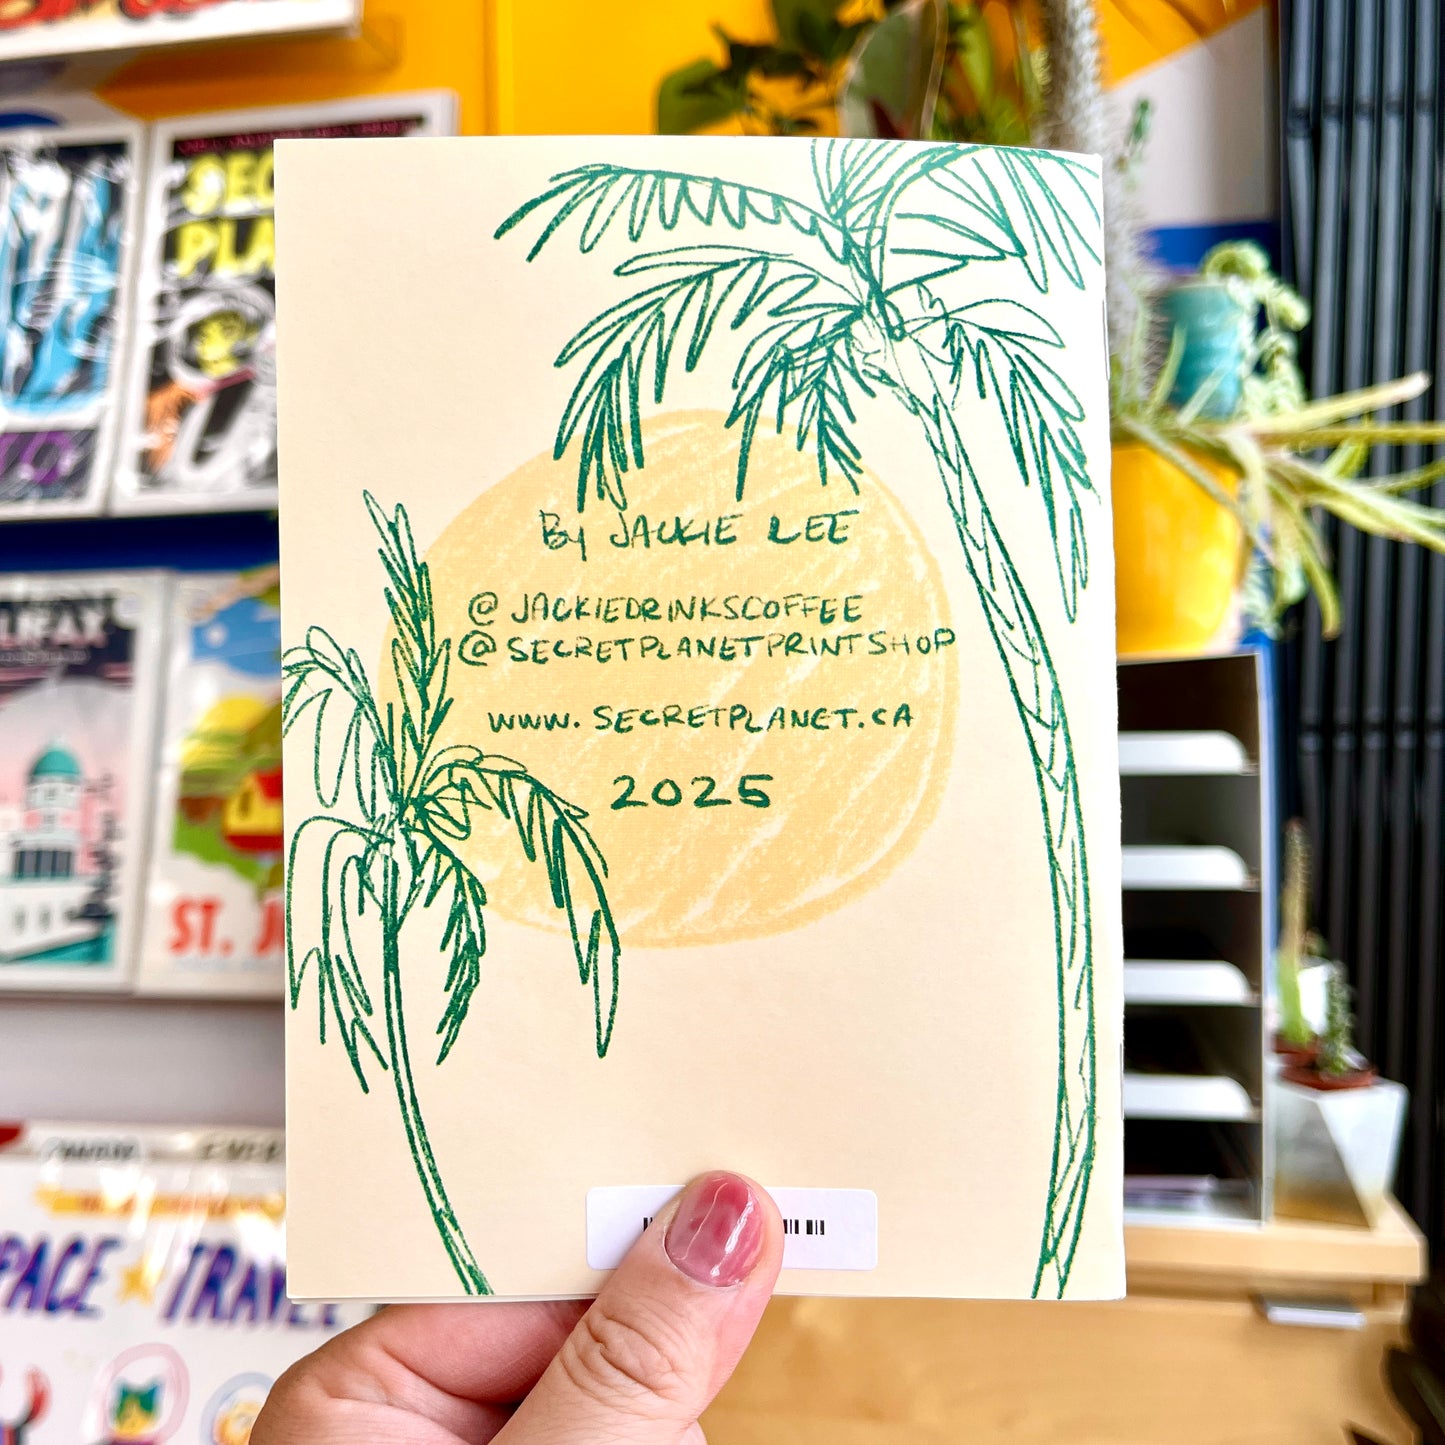 By JACKIE LEE
@JACKIEDRINKSCOFFEE
@SECRETPLANETPRINTSHOP
www.SECRETPLANET.CA
2025
ST. J
SPACE TRAVEL